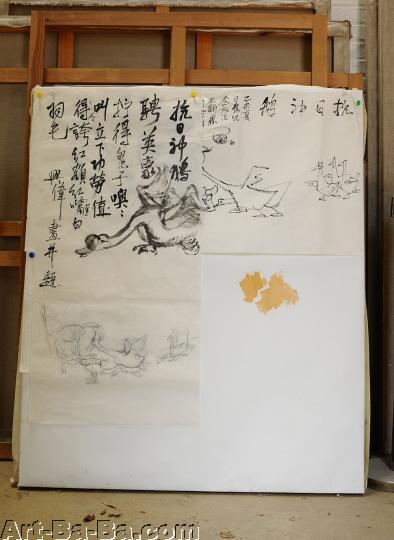 抗日神鵝
抗日神鵝
聘英豪
拧得鬼子嗷々
叫立下功勞值
得誇红额红嘴白
羽毛 興偉畫并題
Art-Ba-Ba.com